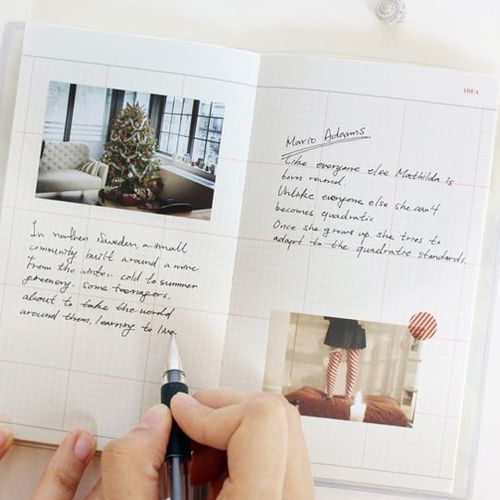 In northern Sweden, a small
community built around a mine
From the white, cold to summer
greenery. some teenagers,
about to take the world
around them, learning to live
IDEA
Mario Adams
Like everyone else Mathilda is
born round.
Unlike everyone else she can't
becomes quadratic
Once she grows up, she tries to
adapt to the quadratic standards.